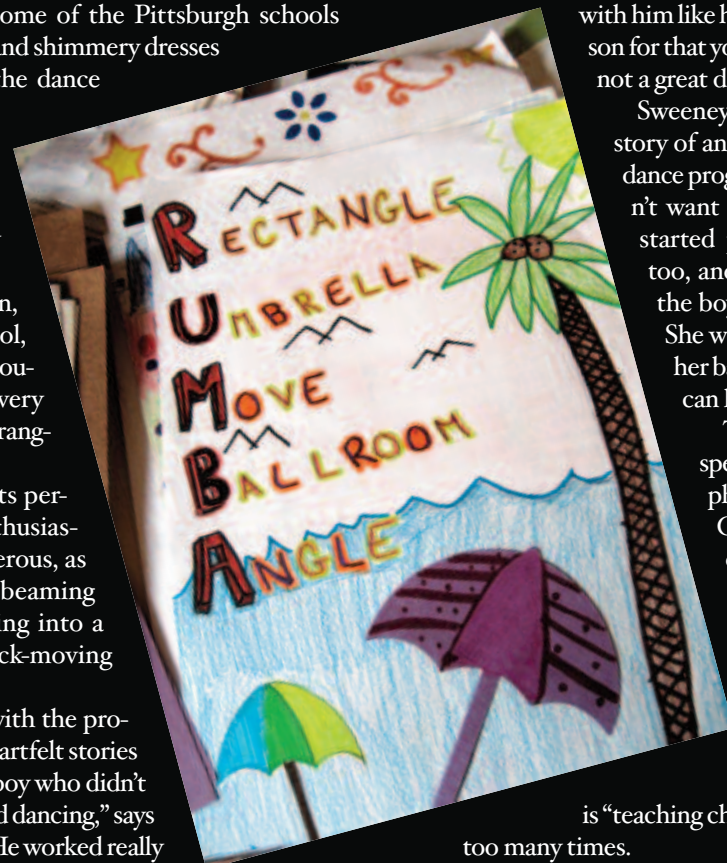 ome of the Pittsburgh schools
and shimmery dresses
he dance
n,
ol,
ou-
very
rang-
ts per-
thusias-
erous, as
beaming
ing into a
ck-moving
with the pro-
artfelt stories
boy who didn't
d dancing," says
He worked really
RECTANGLE
UMBRELLA
MOVE
BALLROOM
ANGLE
with him like h
son for that yo
not a great d
Sweeney
story of an
dance prog
n't want
started
too, and
the bo
She w
her b
can
T
spe
ph
is "teaching ch
too many times.